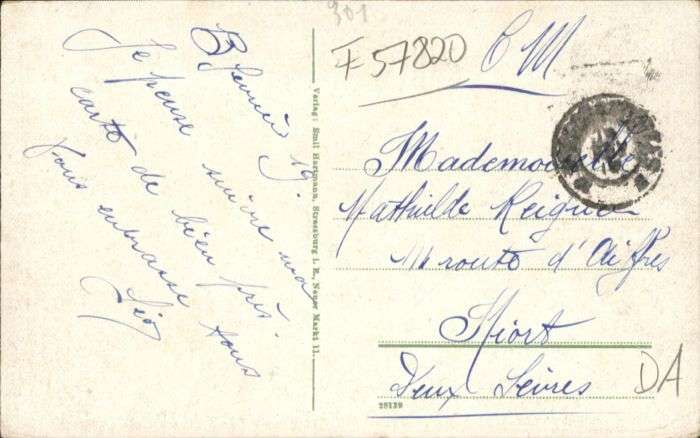 301
F 57820
CM
3 février 19.
Je pense suivre ma
carte de bien près.
Vous embrasse tous
Léo
Verlag: Emil Hartmann, Strassburg i. E., Neuer Markt 11.
Mademoiselle
Mathilde
route d'Aiffres
Niort
Deux Sèvres
28129
DA